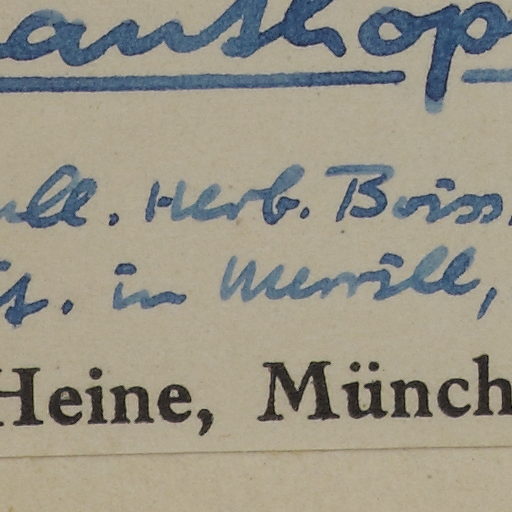 anthop
ull. Herb. Boiss.
in Merrill,
Heine, Münch